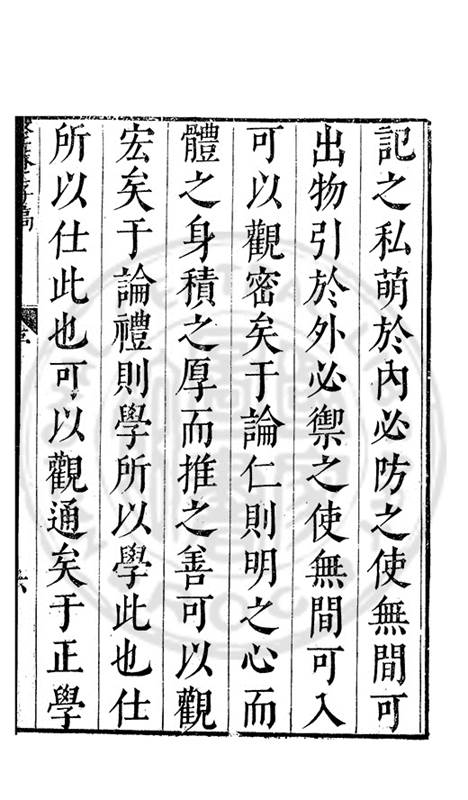 記之私萌於內必防之使無間可
出物引於外必禦之使無間可入
可以觀密矣于論仁則明之心而
體之身積之厚而推之善可以觀
宏矣于論禮則學所以學此也仕
所以仕此也可以觀通矣于正學